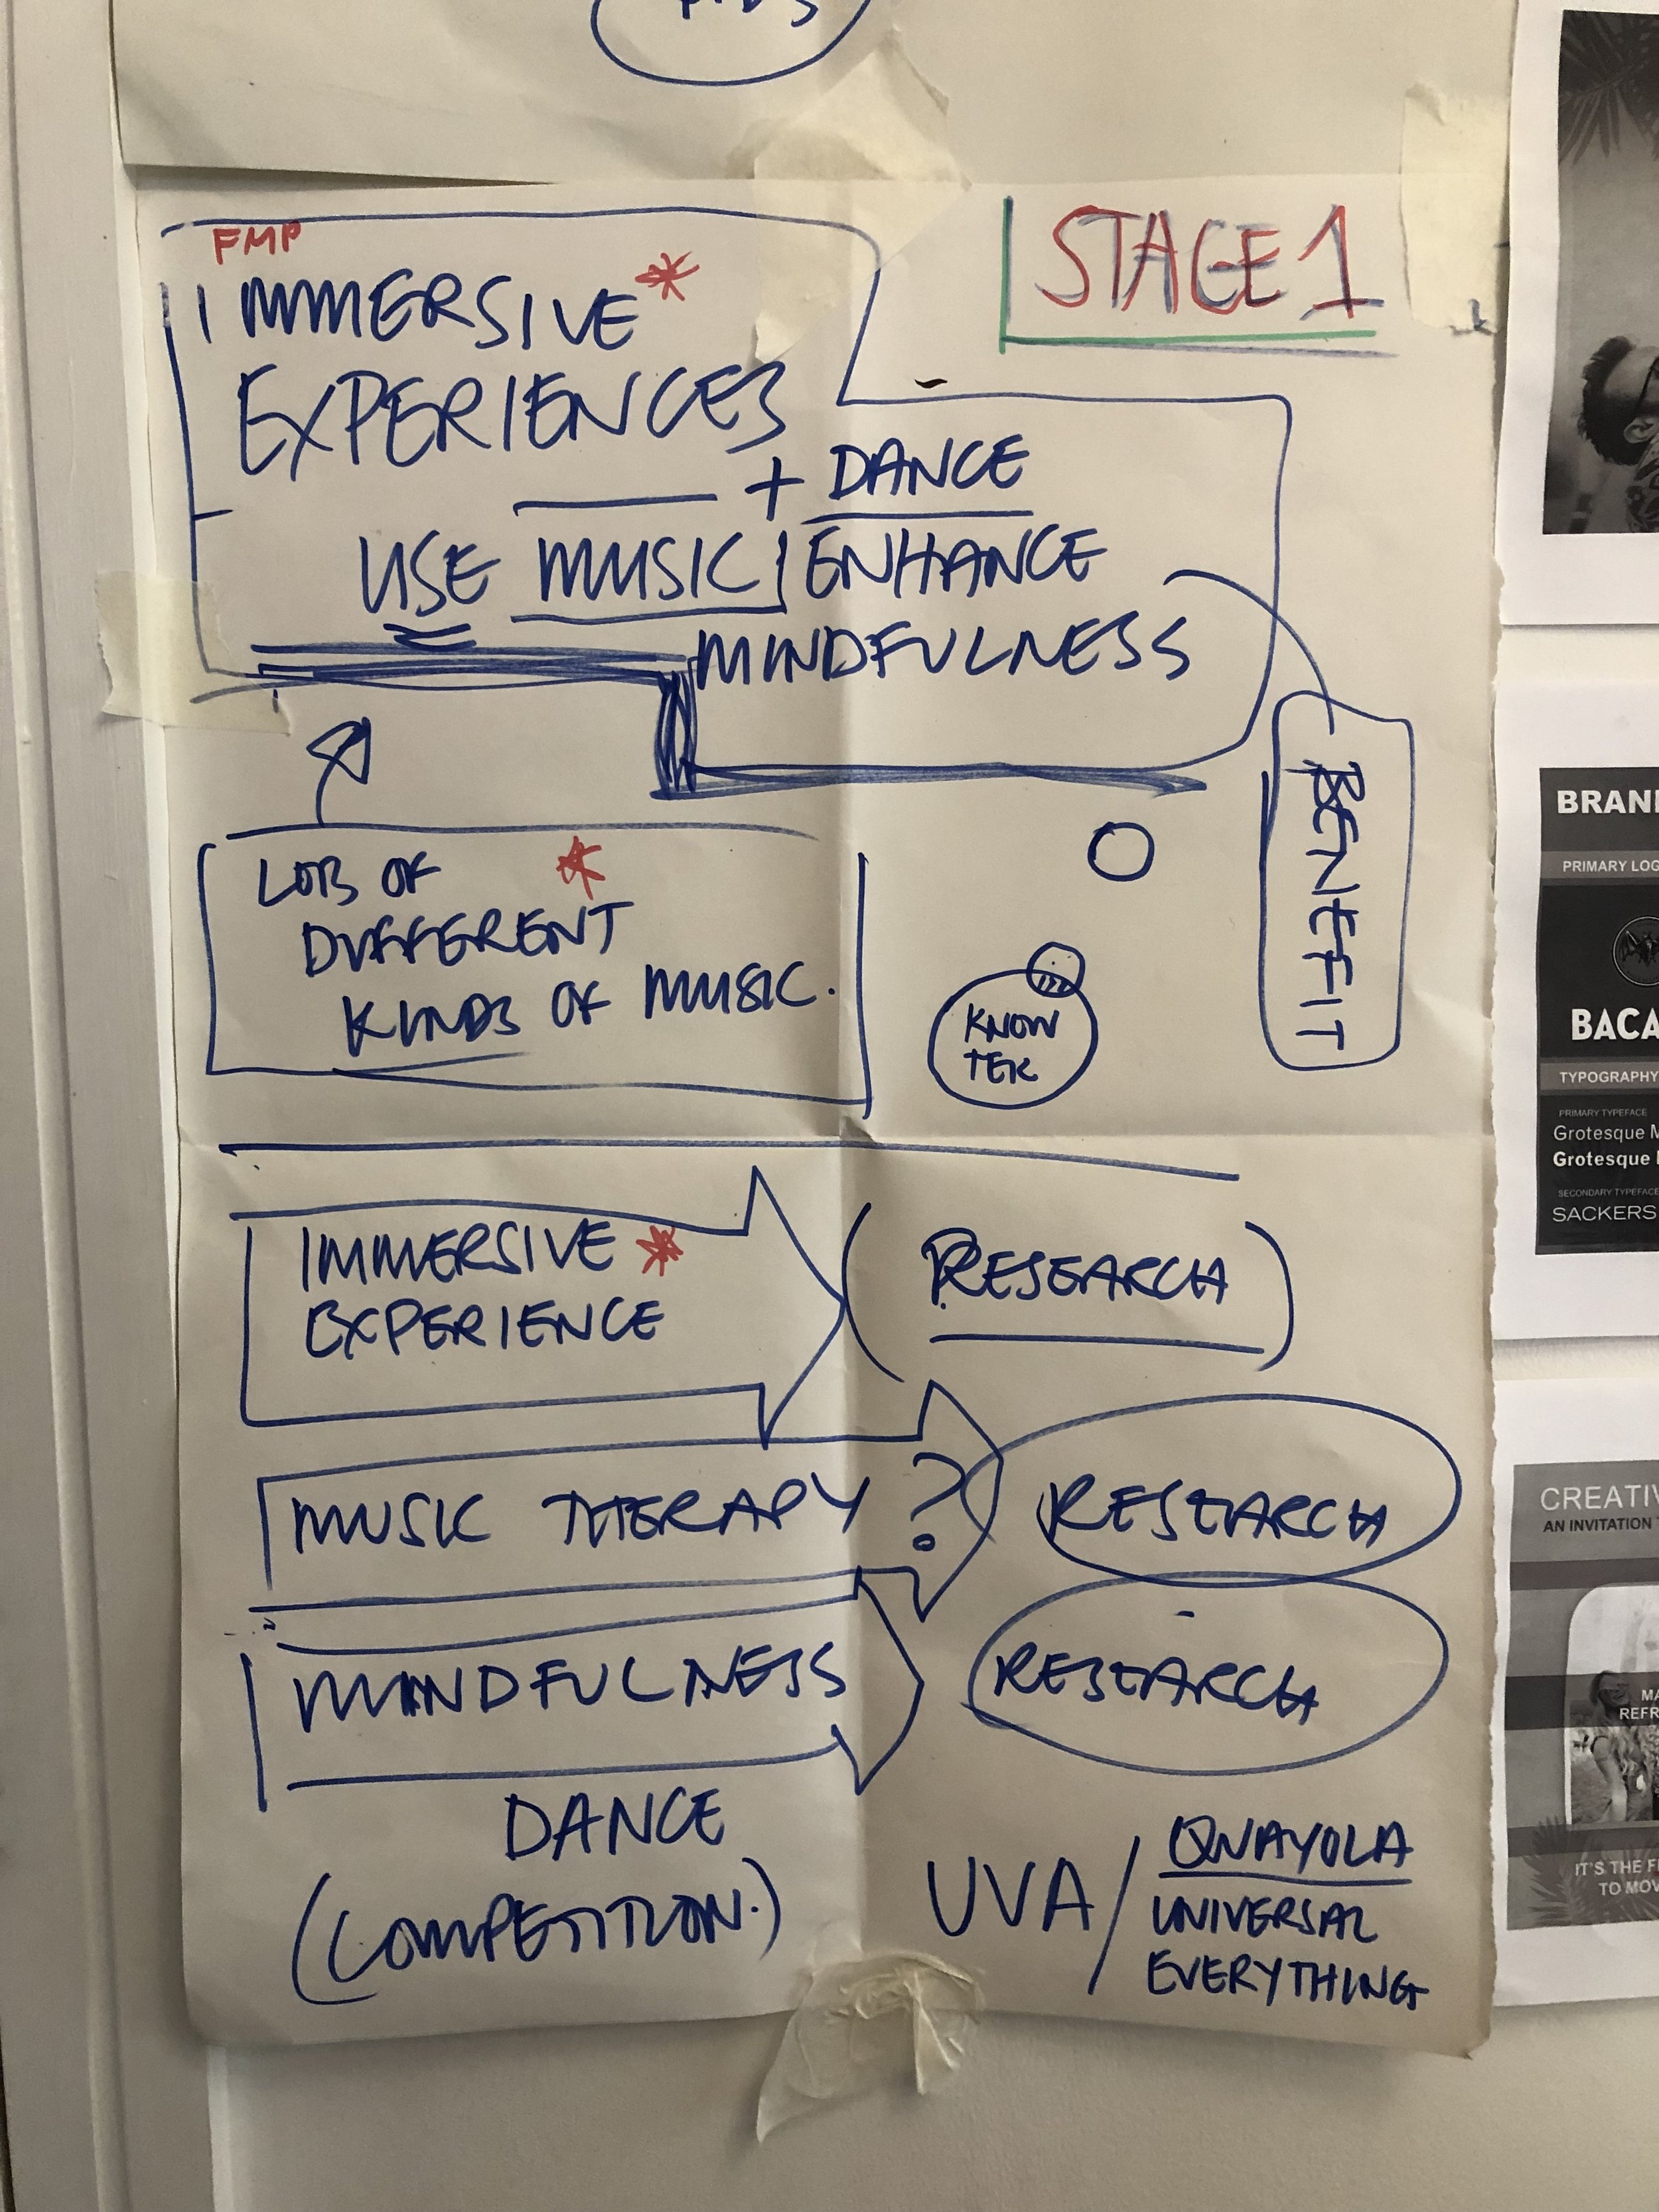 FMP
IMMERSIVE*
EXPERIENCES
STAGE 1
+ DANCE
USE MUSIC ENHANCE
MINDFULNESS
BENEFIT
LOTS OF *
DIFFERENT
KINDS OF MUSIC.
KNOW
TEK
IMMERSIVE *
EXPERIENCE
(RESEARCH)
MUSIC THERAPY ?
RESEARCH
MINDFULNESS
RESEARCH
DANCE
(COMPETITION.)
UVA / QUAYOLA
UNIVERSAL
EVERYTHING
BRAN
PRIMARY LOG
BACA
TYPOGRAPHY
PRIMARY TYPEFACE
Grotesque
Grotesque
SECONDARY TYPEFACE
SACKERS
CREATIV
AN INVITATION
MA
REFR
IT'S THE F
TO MOV